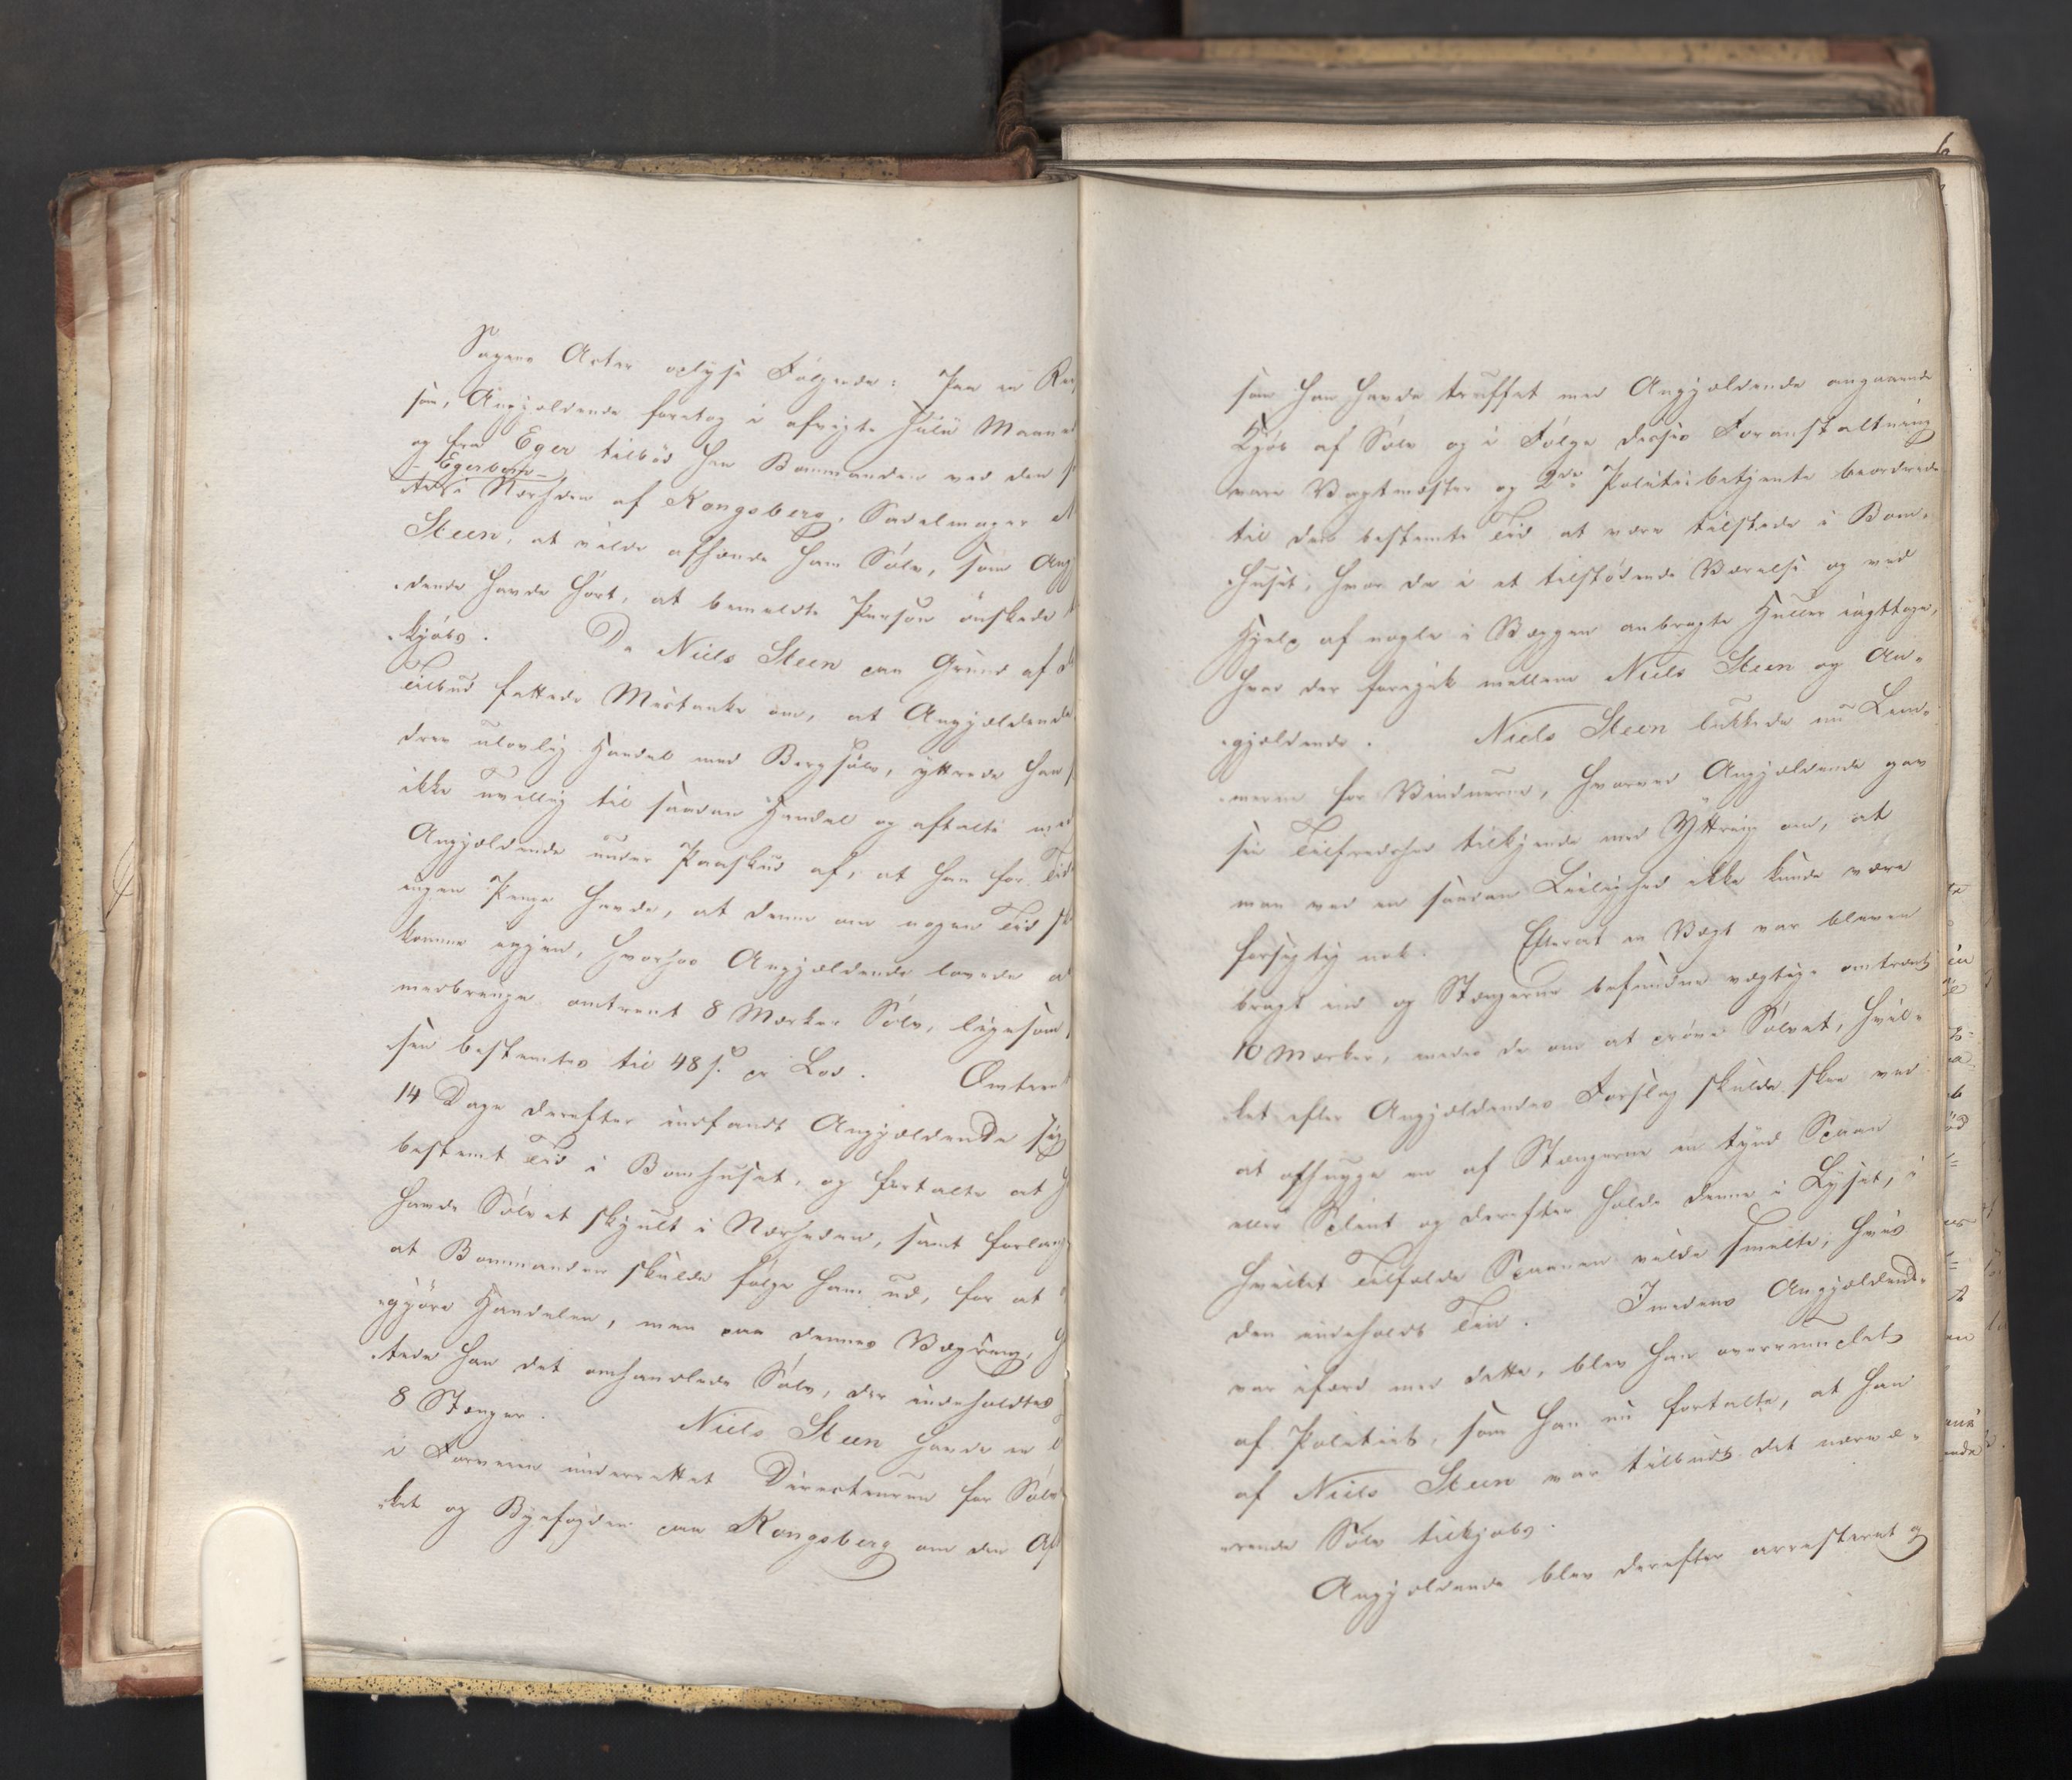 Sagens Acter oplyse Følgende: Paa en Rei
se, Angjældende foretog i afvigte Julii Maaned
og fra Eger tilbød han Bommanden ved den s
- Egerbom -
i Nærheden af Kongsberg, Sadelmager N
Steen, at vilde afhænde ham Sølv, som Angj
dende havde hørt, at bemeldte Person ønskede
kjøbs. Da Niels Steen paa Grund af d
Tilbud fattede Mistanke om, at Angjældende
drev ulovlig Handel med Bergsølv, yttrede han s
ikke uvillig til saadan Handel og aftalte med
Angjældende under Paaskud af, at han for Tid
ingen Penge havde, at denne om nogen Tid sk
komme igjen, hvorhos Angjældende lovede a
medbringe omtrent 8 Marker Sølv, ligesom
sen bestemtes til 48 s. pr Lod. Omtrent
14 Dage derefter indfandt Angjældende sig
bestemt Tid i Bomhuset, og fortalte at h
havde Sølvet skjult i Nærheden, samt forlang
at Bommanden skulde følge ham ud, for at
gjøre Handelen, men paa dennes Vægring, h
tede han det omhandlede Sølv, der indeholdtes
8 Stænger. Niels Steen havde en
i Forveien underrettet Directeuren for Sølv
ket og Byefogden paa Kongsberg om den Af
som han havde truffet med Angjældende angaaende
Kjøb af Sølv og i Følge dessen Foranstaltning
vare Vagtmester og 2de Politiebetjente beordrede
til den bestemte Tid at være tilstede i Bom-
huset, hvor de i et tilstødende Værelse og ved
Hjelp af nogle i Væggen anbragte Huller iagttoge,
hvad der foregik mellem Niels Steen og An-
gjældende. Niels Steen lukkede nu Lem-
mene for Vinduerne, hvorved Angjældende gav
sin Tilfredshed tilkjende med Yttring om, at
man ved en saadan Leilighed ikke kunde være
forsigtig nok. Efterat en Vægt var bleven
bragt ind og Stængerne befundne vægtige omtrent
10 Marker, meeds de om at prøve Sølvet, hvil-
ket efter Angjældendes Forslag skulde skee ved
at afhugge en af Stængerne en tynd Spaan
eller Splint og derefter holde denne i Lyset, i
hvilket Tilfælde Spaanen vilde smelte, hvis
den indeholdt Tin. Imedens Angjældende
var ifærd med dette, blev han overrumplet
af Politiet, som han nu fortalte, at han
af Niels Steen var tilbudt det nærvæ-
rende Sølv tilkjøbs.
Angjældende blev derefter arresteret og